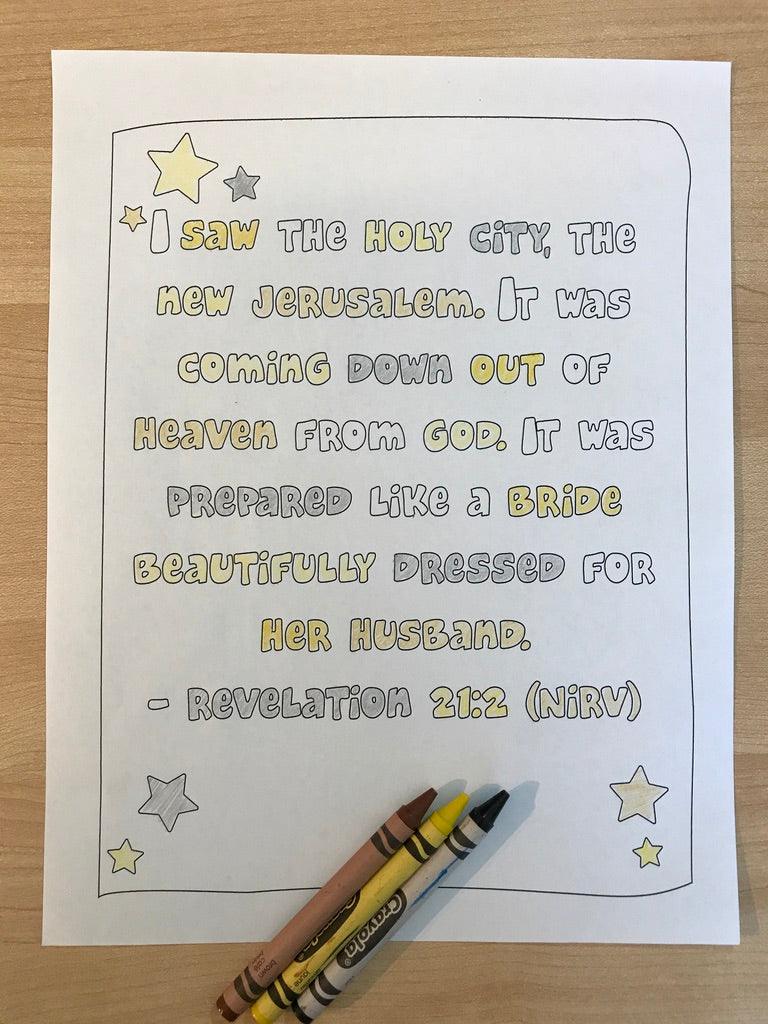 I saw the Holy City, the
new Jerusalem. It was
coming down out of
Heaven from God. It was
prepared like a bride
beautifully dressed for
her husband.
- Revelation 21:2 (NIRV)
Crayola
brown
café
jaune